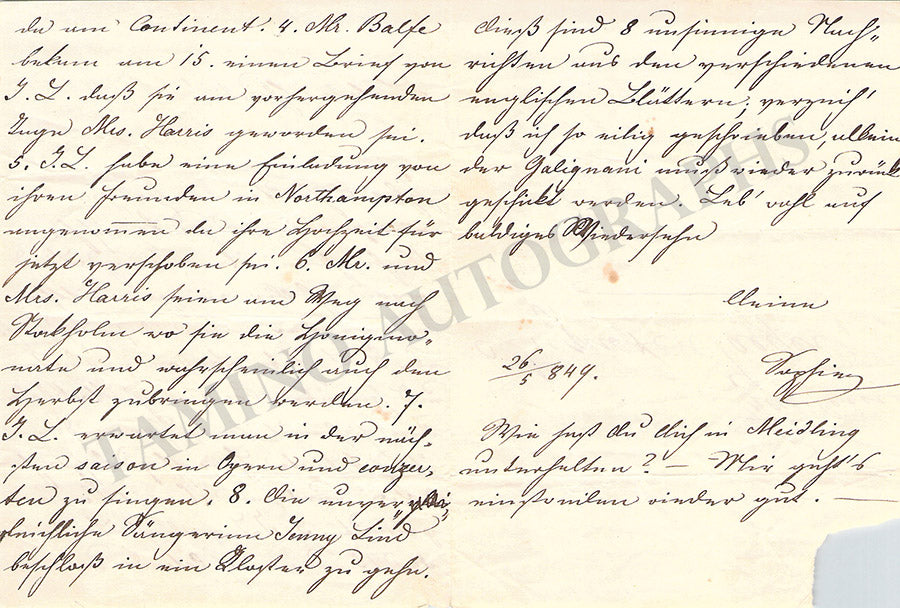 da am Continent. 4. Mr. Balfe
bekam am 15. einen Brief von
J. L. daß sie am vorhergehenden
Tage Mrs. Harris geworden sei.
5. J. L. habe eine Einladung von
ihren Freunden in Northampton
angenommen da ihre Hochzeit für
jetzt verschoben sei. 6. Mr. und
Mrs. Harris seien am Weg nach
Stockholm wo sie die Honigmo-
nate und wahrscheinlich auch den
Herbst zubringen werden. 7.
J. L. erwartet man in der näch-
sten saison in Opern und conzer-
ten zu singen. 8. die unver-
gleichliche Sängerinn Jenny Lind
beschloß in ein Kloster zu gehn.
Dieß sind 8 unsinnige Nach-
richten aus den verschiedenen
englischen Blättern; verzeih'
daß ich so eilig geschrieben, allein
der Galignani muß wieder zurück
geschickt werden. Leb' wohl auf
baldiges Wiedersehn
Deine
26/5 849.
Sophie
Wie hast du dich in Meidling
unterhalten? — Mir geht's
einstweilen wieder gut. —
TAMINO AUTOGRAPHS